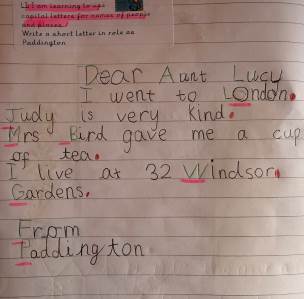 L.I. I am learning to use
capital letters for names of people
and places.
Write a short letter in role as
Paddington
Dear Aunt Lucy
I went to LOndon.
Judy is very kind.
Mrs Bird gave me a cup
of tea.
I live at 32 Windsor
Gardens.
From
Paddington